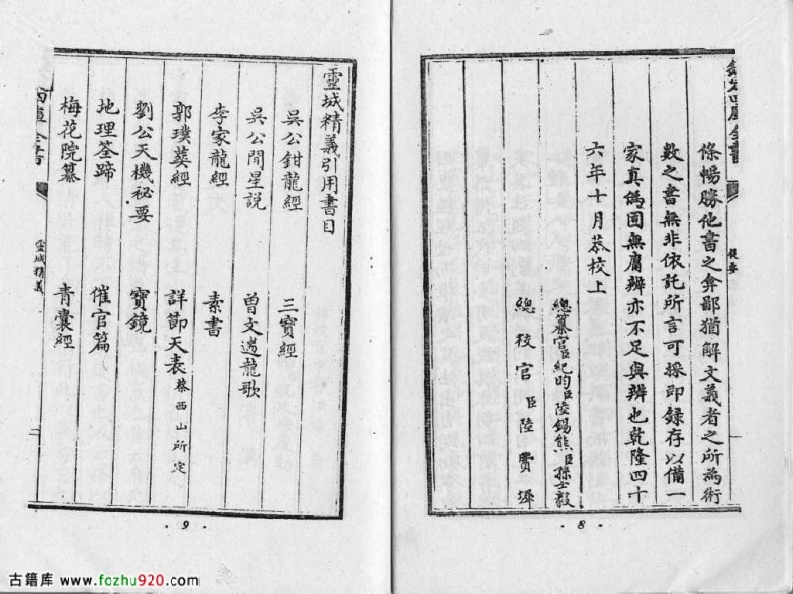 欽定四庫全書
提要
條暢勝他書之弇鄙猶解文義者之所為術
數之書無非依託所言可採即録存以備一
家真偽固無庸辨亦不足與辨也乾隆四十
六年十月恭校上
總纂官臣紀昀臣陸錫熊臣孫士毅
總校官臣陸費墀
· 8 ·
靈城精義引用書目
吳公鉗龍經 三寶經
吳公間星說 曾文遄龍歌
李家龍經 素書
郭璞葬經 詳節天表 蔡西山所定
劉公天機秘要 寶鏡
地理筌蹄 催官篇
梅花院纂 青囊經
四庫全書
靈城精義
· 9 ·
古籍库 www.fozhu920.com